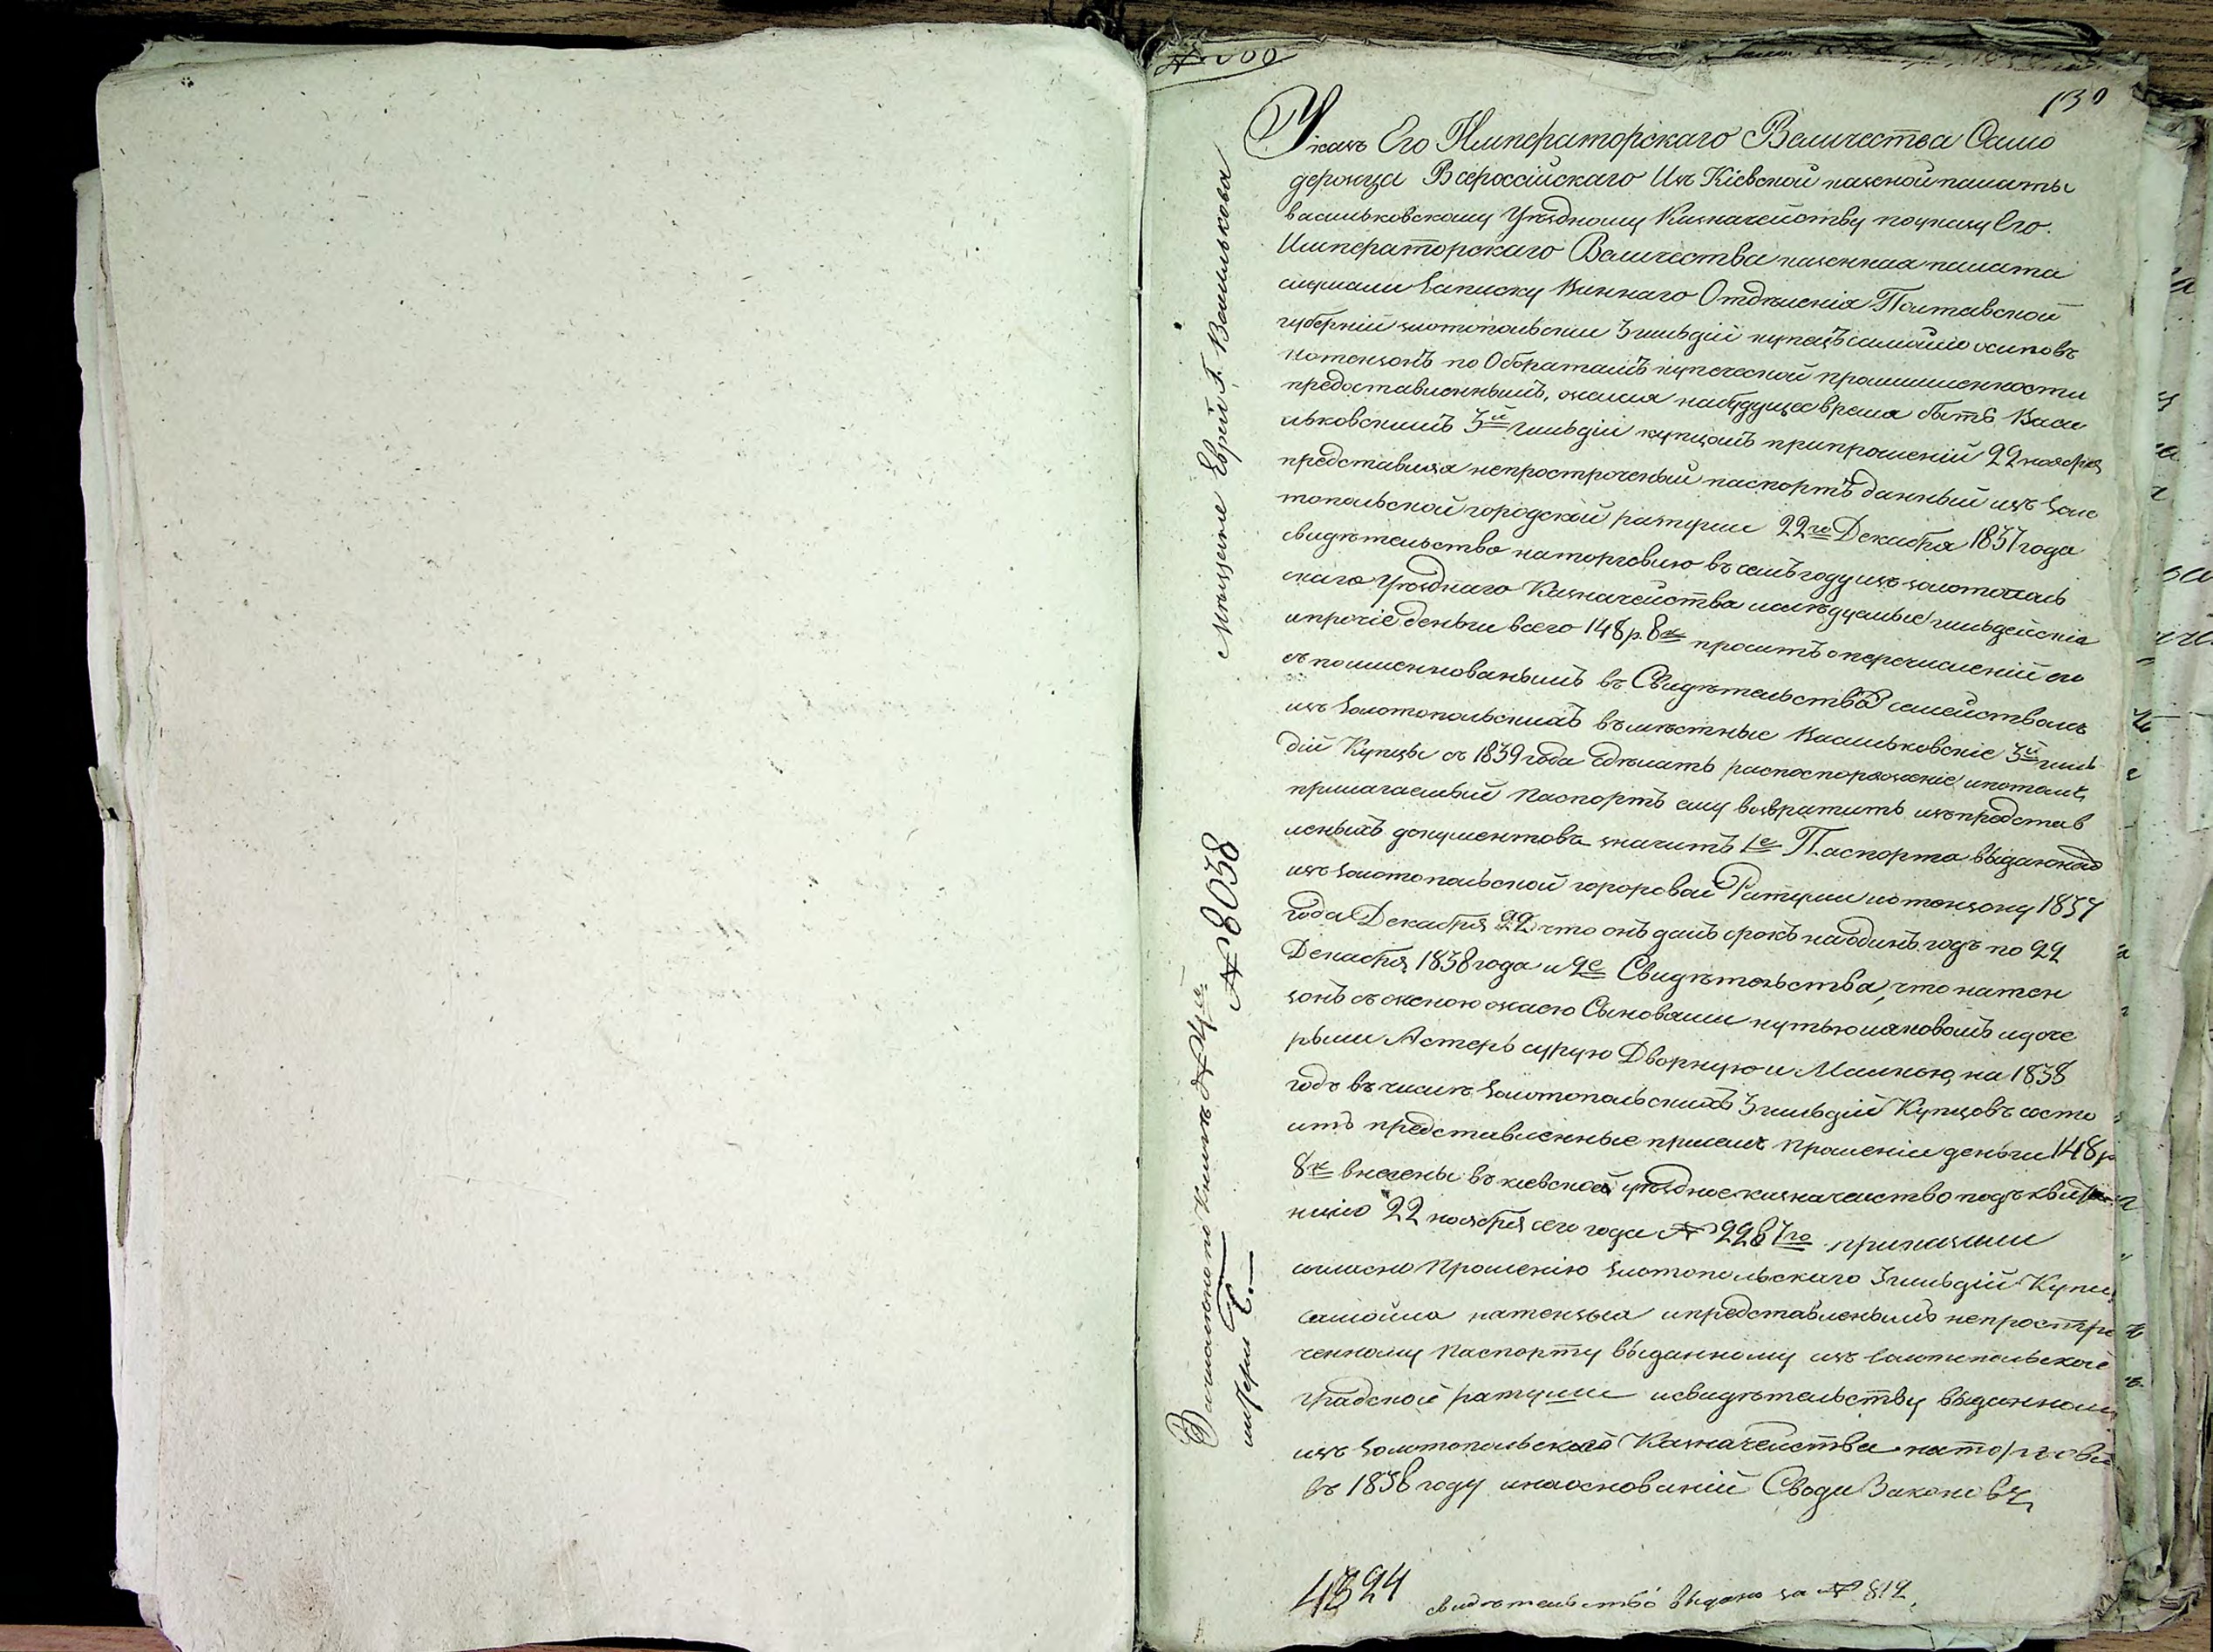 130
Указъ Его Императорскаго Величества Само
держца Всероссійскаго Изъ Кіевской казеной палаты
васильковскому Уѣздному Казначейству поуказу Его
Императорскаго Величества казенная палата
слушали Записку Виннаго Отдѣленія Полтавской
губерніи золотопольскии 3 гильдіи купецъ самойло осиповъ
натензонъ по Оборатамъ купеческой промышленности
предоставленнымъ, желая набудущее время быть Васи
льковскимъ 3й гильдіи купцомъ припрошеніи 22 ноября
представляя непросроченый паспортъ данный изъ Золо
топольской городской ратуши 22го Декабря 1837 года
свидѣтельство наторговлю въ семъ году изъ золотополь
скаго Уѣзднаго Казначейства ислѣдуемые гильдейскіе
ипрочіе деньги всего 148 р. 8 к просить о перечисленіи его
съ поименнованымъ въ Свидѣтельствѣ семействомъ
изъ Золотопольскихъ въ мѣстные Васильковскіе 3й гиль
діи Купцы съ 1839 года сдѣлать распоспоряженіе ипотомъ
прилагаемый Паспортъ ему возвратить изъ представ
леныхъ документовъ значитъ 1е Паспорта выданного
изъ Золотопольской городовой Ратуши натензону 1837
года Декабря 22 что онъ данъ срокъ на одинъ годъ по 22
Декабря 1838 года и 2е Свидѣтельства, что натен
зонъ съ женою хаею Сыновьями нутою иаковомъ идоче
рьми Астеръ сурую Дворкую и Малкою, на 1838
годъ въ числѣ Золотопольскихъ 3 гильдіи Купцовъ состо
итъ представленные присемъ прошеніи деньги 148 р
8 к внесены въ кіевской уѣздное казначейство подъ квитан
нцію 22 ноября сего года № 2287го приказали
согласно Прошенію Золотопольскаго 3 гильдіи Купца
самойла натензона ипредставленымъ непросро
ченному паспорту выданному изъ Золотопольской
градской ратуши исвидѣтельству выданном
изъ Золотопольскаго Казначейства наторгов
въ 1838 году инаоснованіи Свода Законовъ
4324 свидѣтельство выдано за № 812.
Мещане Евреи Г. Василькова
№ 8038
Зачисленно по Книгѣ № 4й